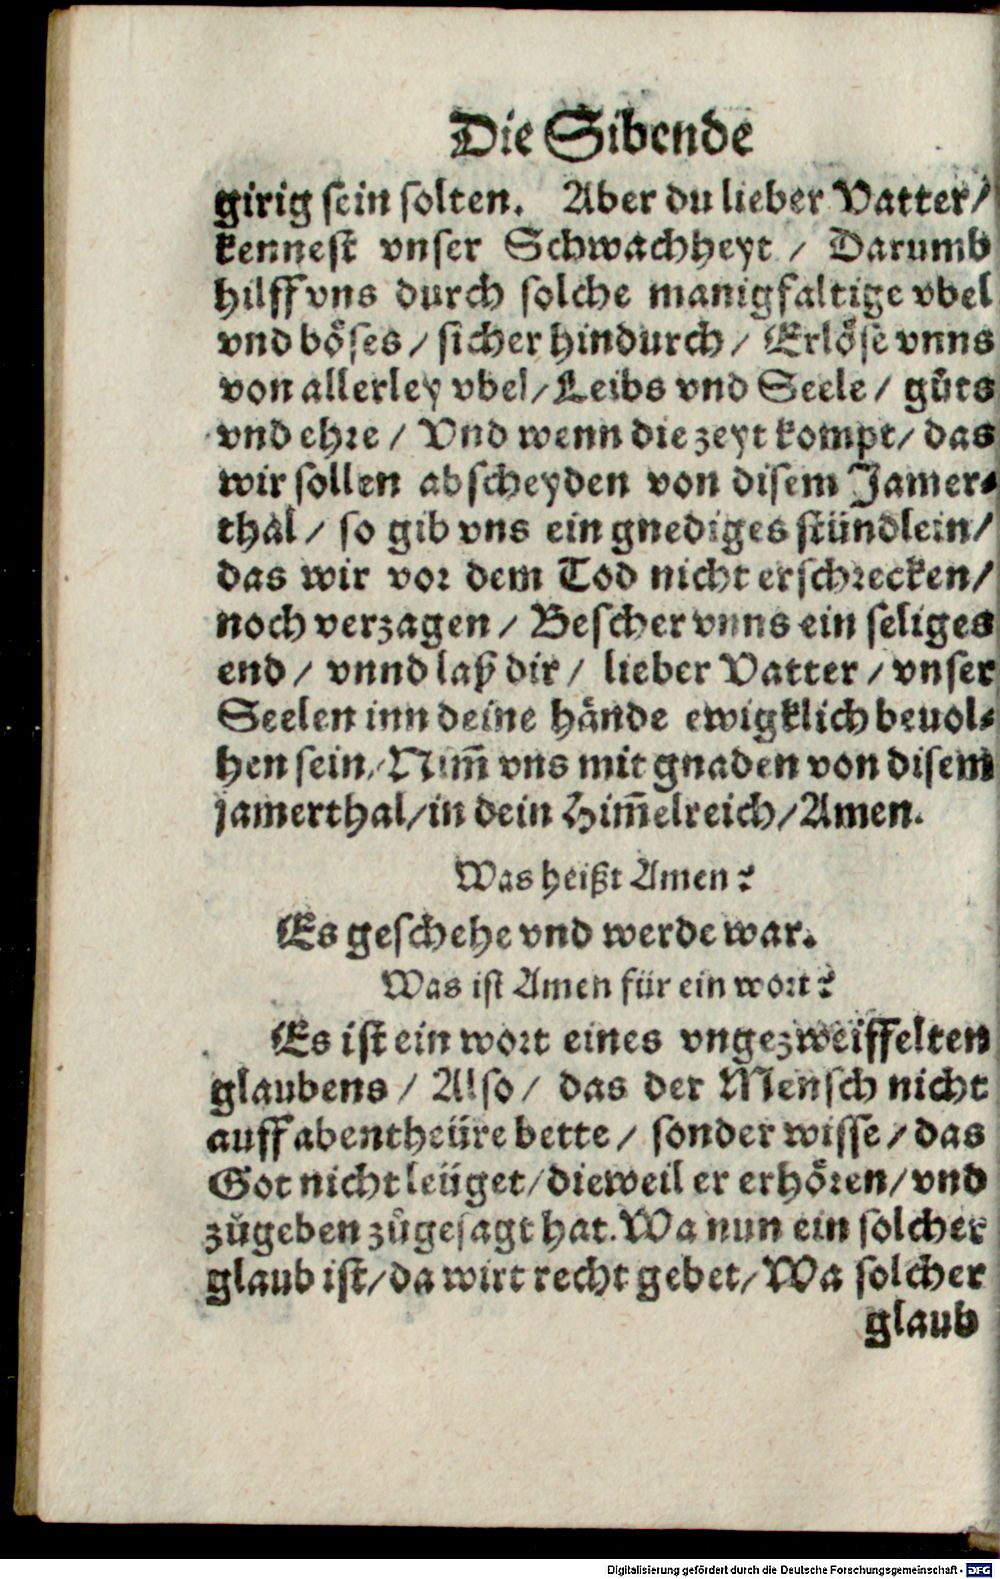 Die Sibende
girig sein solten. Aber du lieber Vatter/
kennest vnser Schwachheyt / Darumb
hilff vns durch solche manigfaltige vbel
vnd böses / sicher hindurch / Erlöse vnns
von allerley vbel / Leibs vnd Seele / gůts
vnd ehre / Vnd wenn die zeyt kompt / das
wir sollen abscheyden von disem Jamer⸗
thal / so gib vns ein gnediges stündlein /
das wir vor dem Tod nicht erschrecken /
noch verzagen / Bescher vnns ein seliges
end / vnnd laß dir / lieber Vatter / vnser
Seelen inn deine hände ewigklich beuol⸗
hen sein / Nim̄ vns mit gnaden von disem
jamerthal / in dein Him̄elreich / Amen.
Was heißt Amen?
Es geschehe vnd werde war.
Was ist Amen für ein wort?
Es ist ein wort eines vngezweiffelten
glaubens / Also / das der Mensch nicht
auff abentheüre bette / sonder wisse / das
Got nicht leüget / dieweil er erhören / vnd
zůgeben zůgesagt hat. Wa nun ein solcher
glaub ist / da wirt recht gebet / Wa solcher
glaub
Digitalisierung gefördert durch die Deutsche Forschungsgemeinschaft - DFG